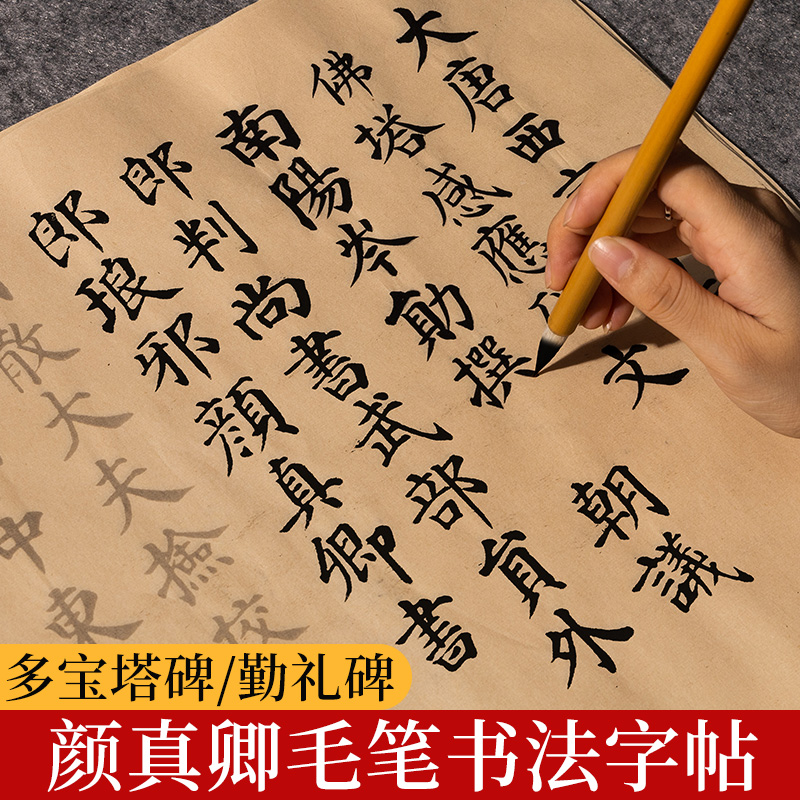 大唐西
佛塔感應
文
南陽岑勛撰
朝議
郎判尚書武部員外
郎琅邪顏真卿書
散大夫撿校
中東
多宝塔碑/勤礼碑
颜真卿毛笔书法字帖